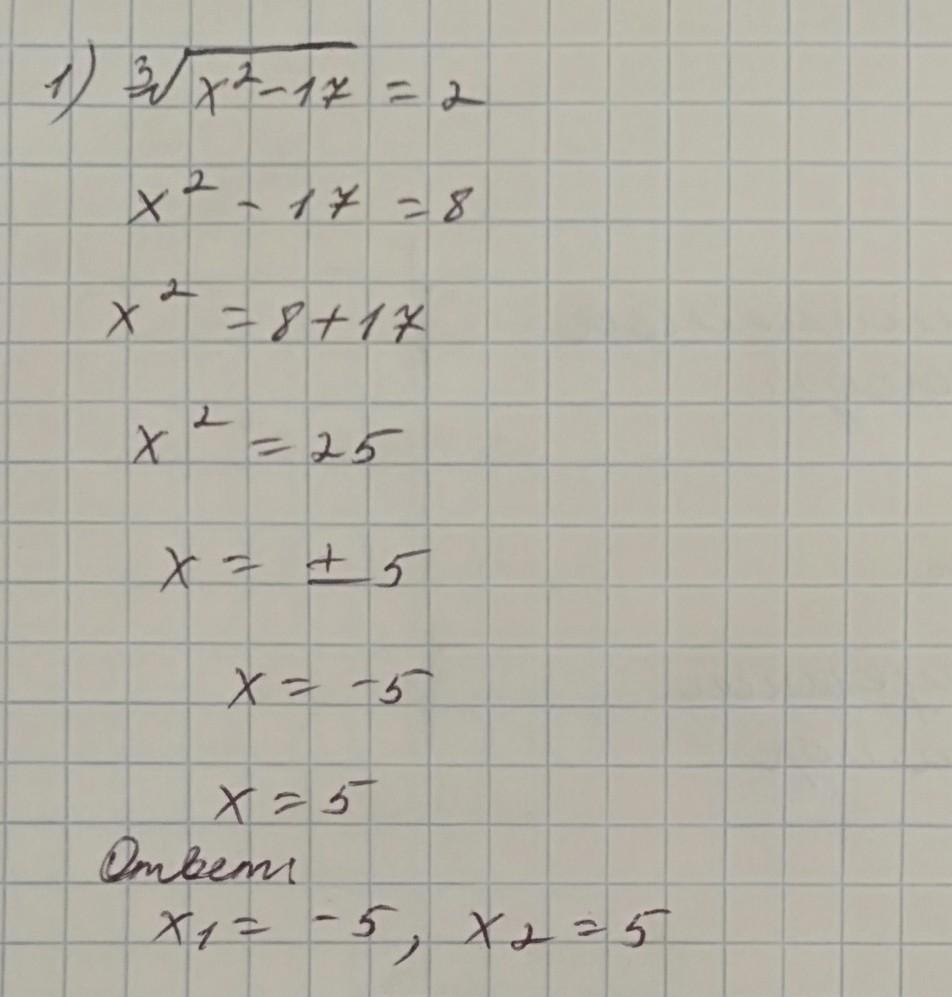 1) ∛(x² - 17) = 2
x² - 17 = 8
x² = 8 + 17
x² = 25
x = ± 5
x = -5
x = 5
Ответ
x₁ = -5, x₂ = 5